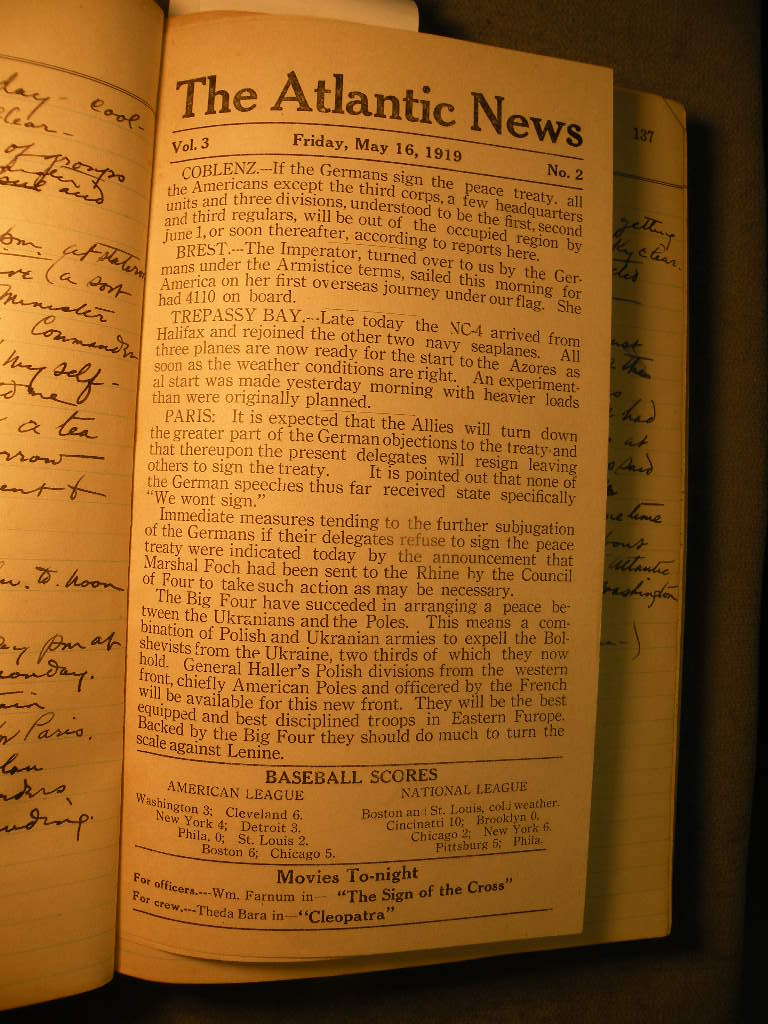 day - cool-
clear-
of groups
and
pm. at
(a sort
Minister
Commander
my self-
a tea
to. noon
pm at
monday.
Paris.
The Atlantic News
Vol. 3 Friday, May 16, 1919 No. 2
COBLENZ.—If the Germans sign the peace treaty. all
the Americans except the third corps, a few headquarters
units and three divisions, understood to be the first, second
and third regulars, will be out of the occupied region by
June 1, or soon thereafter, according to reports here.
BREST.—The Imperator, turned over to us by the Ger-
mans under the Armistice terms, sailed this morning for
America on her first overseas journey under our flag. She
had 4110 on board.
TREPASSY BAY.---Late today the NC-4 arrived from
Halifax and rejoined the other two navy seaplanes. All
three planes are now ready for the start to the Azores as
soon as the weather conditions are right. An experiment-
al start was made yesterday morning with heavier loads
than were originally planned.
PARIS: It is expected that the Allies will turn down
the greater part of the German objections to the treaty and
that thereupon the present delegates will resign leaving
others to sign the treaty. It is pointed out that none of
the German speeches thus far received state specifically
"We wont sign."
Immediate measures tending to the further subjugation
of the Germans if their delegates refuse to sign the peace
treaty were indicated today by the announcement that
Marshal Foch had been sent to the Rhine by the Council
of Four to take such action as may be necessary.
The Big Four have succeded in arranging a peace be-
tween the Ukranians and the Poles. This means a com-
bination of Polish and Ukranian armies to expell the Bol-
shevists from the Ukraine, two thirds of which they now
hold. General Haller's Polish divisions from the western
front, chiefly American Poles and officered by the French
will be available for this new front. They will be the best
equipped and best disciplined troops in Eastern Furope.
Backed by the Big Four they should do much to turn the
scale against Lenine.
BASEBALL SCORES
AMERICAN LEAGUE
Washington 3; Cleveland 6.
New York 4; Detroit 3.
Phila. 0; St. Louis 2.
Boston 6; Chicago 5.
NATIONAL LEAGUE
Boston and St. Louis, cold weather.
Cincinatti 10; Brooklyn 0.
Chicago 2; New York 6.
Pittsburg 5; Phila.
Movies To-night
For officers.---Wm. Farnum in-- "The Sign of the Cross"
For crew.---Theda Bara in—"Cleopatra"
137
getting
clear.
had
at
time
Atlantic
Washington